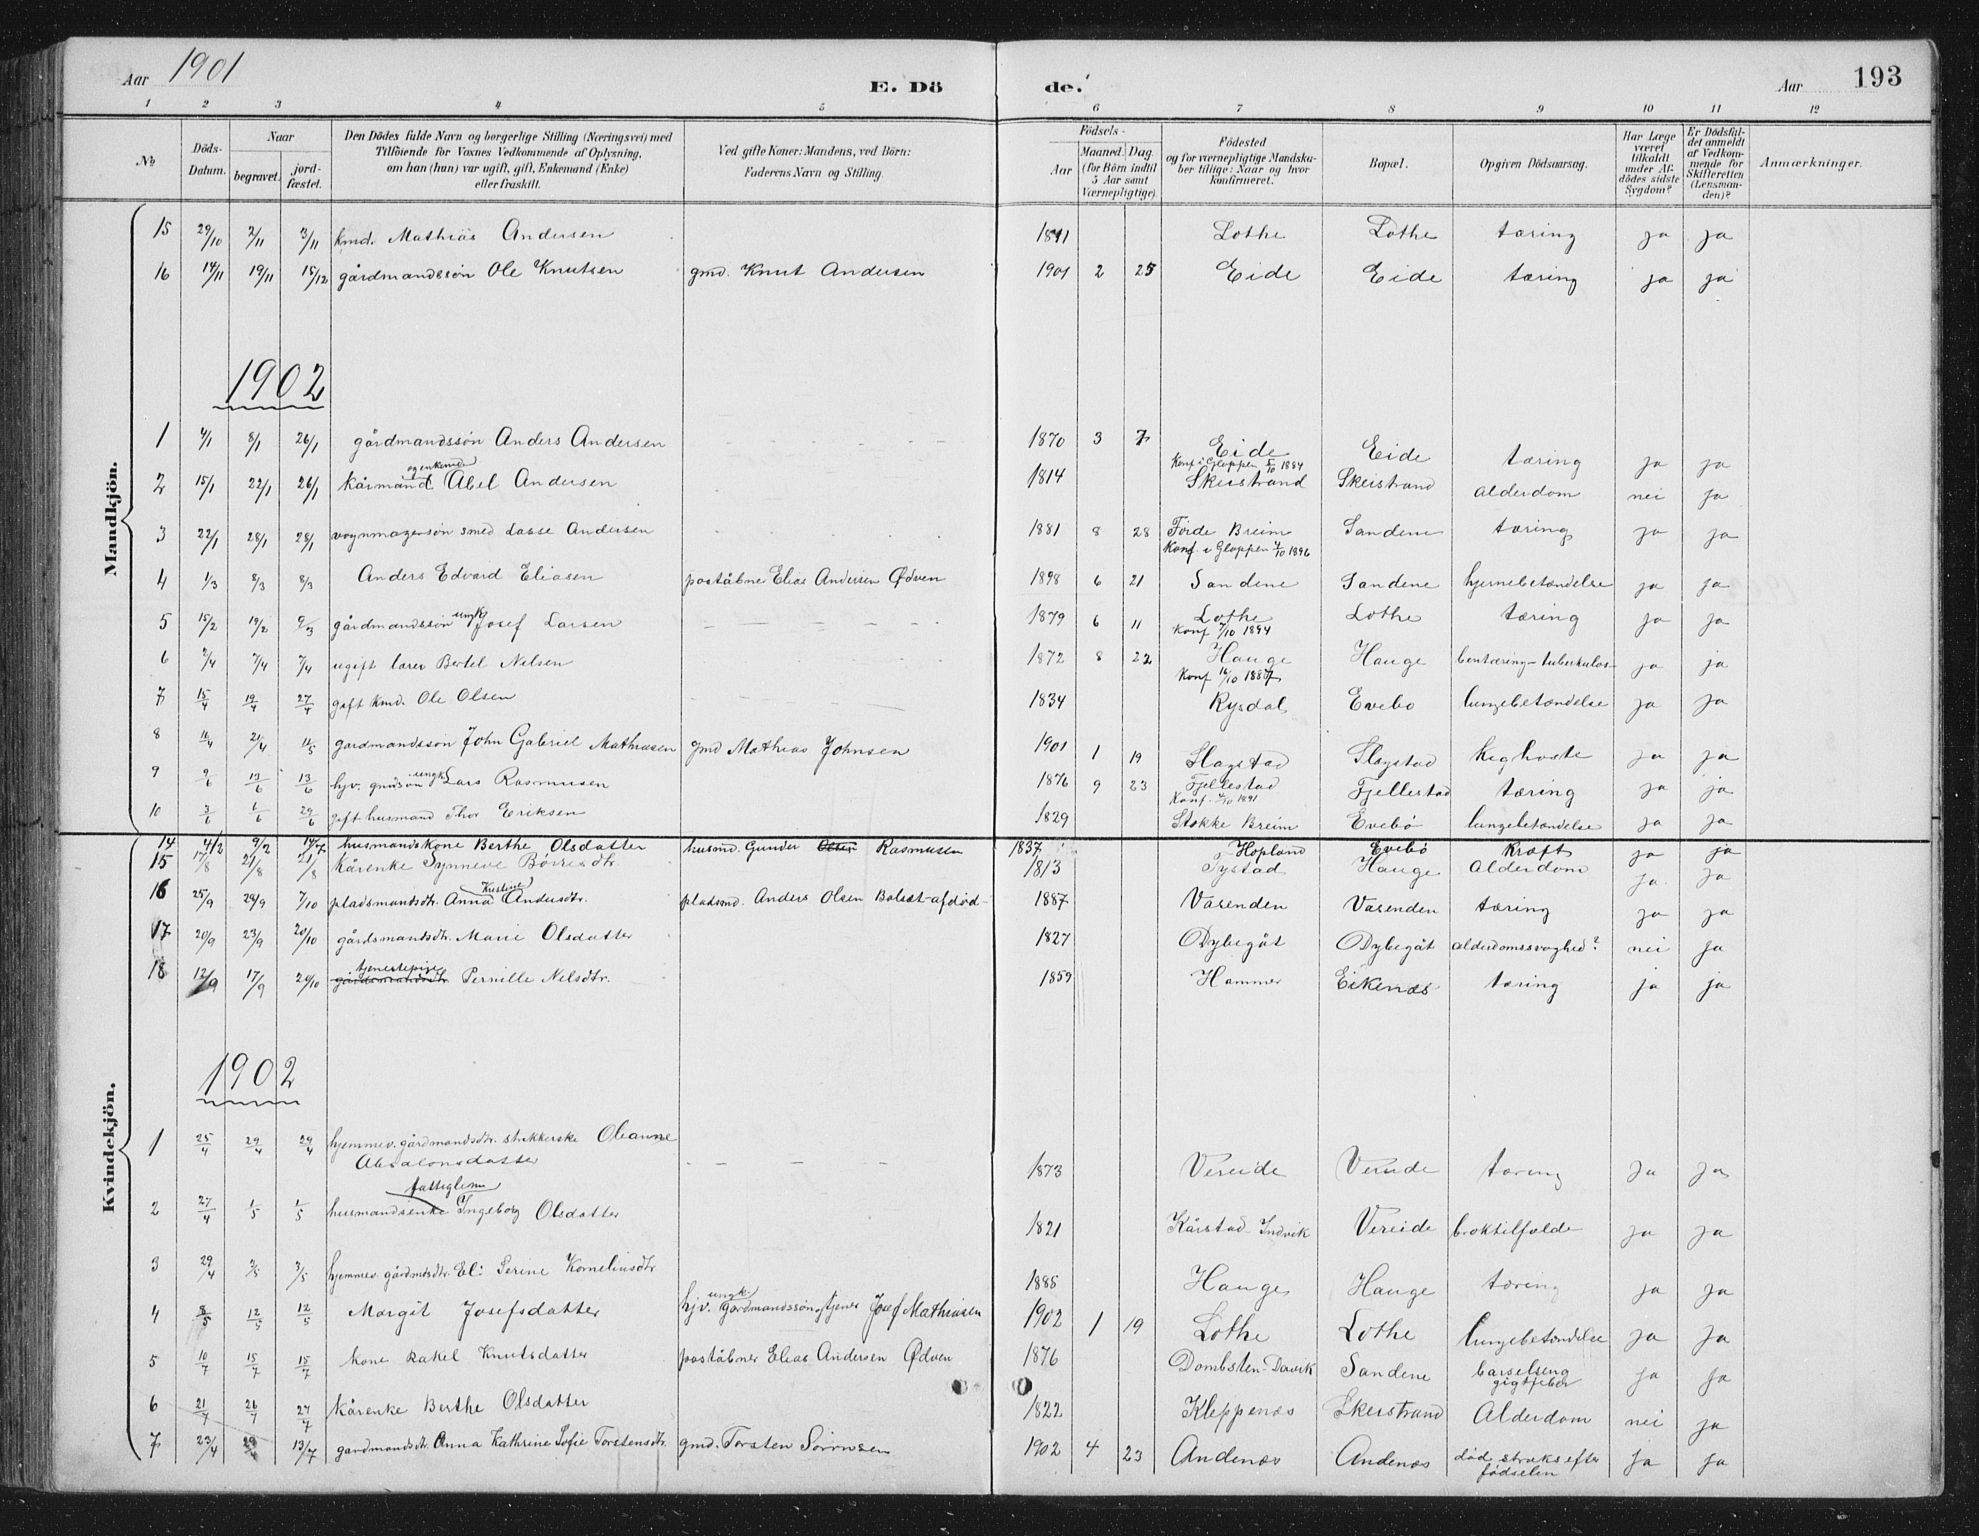 Aar 1901 E. Döde. Aar 193
1 2 3 4 5 6 7 8 9 10 11 12
No Döds-Datum. Naar begravet. jord-fæstet. Den Dödes fulde Navn og borgerlige Stilling (Næringsvei) med Tilföiende for Voxnes Vedkommende af Oplysning, om han (hun) var ugift, gift, Enkemand (Enke) eller fraskilt. Ved gifte Koner: Mandens, ved Börn: Faderens Navn og Stilling. Födsels- Aar Maaned. Dag. (for Börn indtil 5 Aar samt Værnepligtige). Födested og for værnepligtige Mandskaber tillige: Naar og hvor konfirmeret. Bopæl. Opgiven Dödsaarsag. Har Læge været tilkaldt under Afdödes sidste Sygdom? Er Dödsfaldet anmeldt af Vedkommende for Skifteretten (Lensmanden)? Anmærkninger.
Mandkjön.
15 29/10 2/11 3/11 kmd. Mathias Andersen 1841 Lothe Lothe tæring ja ja
16 14/11 19/11 15/12 gårdmandssön Ole Knutsen gmd. Knut Andersen 1901 2 25 Eide Eide tæring ja ja
1902
1 4/1 8/1 26/1 gårdmandssön Anders Andersen 1870 3 7 Eide Konf i Gloppen 5/10 1884 Eide tæring ja ja
2 15/1 22/1 26/1 kårmand og enkemd Abel Andersen 1814 Skeistrand Skeistrand alderdom nei ja
3 22/1 28/1 28/1 vognmagersön smed Lasse Andersen 1881 8 28 Förde Breim Konf. i Gloppen 4/10 1896 Sandene tæring ja ja
4 1/3 8/3 8/3 Anders Edvard Eliasen poståbner Elias Andersen Ødven 1898 6 21 Sandene Sandene hjernebetændelse ja ja
5 15/2 19/2 9/3 gårdmandssön ungk Josef Larsen 1879 6 11 Lothe Konf 7/10 1894 Lothe tæring ja ja
6 2/4 7/4 7/4 ugift lærer Bertel Nilsen 1872 8 22 Hauge Konf 16/10 1887 Hauge bentæring-tuberkulos- ja ja
7 15/4 19/4 27/4 gift kmd. Ole Olsen 1834 Rysdal Evebo lungebetændelse ja ja
8 16/4 21/4 11/5 gardmandssön John Gabriel Mathiasen gmd Mathias Johnsen 1901 1 19 Slagstad Slagstad kighoste ja ja
9 9/6 13/6 13/6 hjv. gmdsön ungk Lars Rasmussen 1876 9 23 Fjellestad Konf. 4/10 1891 Fjellestad tæring ja ja
10 3/6 1/6 29/6 gift husmand Thor Eriksen 1829 Stokke Breim Evebö lungebetændelse ja ja
Kvindekjön.
14 4/2 9/2 14/7 husmandskone Berthe Olsdatter husmd. Gunder Olsen Rasmusen 1837 Hopland Evebö kræft ja ja
15 17/8 21/8 21/8 kårenke Synneve Börresdtr. 1813 Tystad Hauge Alderdom ja. ja
16 25/9 29/9 7/10 pladsmandsdtr. Anna Kristine Andersdtr. pladsmd. Anders Olsen Bolset-afdöd- 1887 Vårenden Vårenden tæring ja ja
17 20/9 23/9 20/10 gårdsmandsdtr. Marie Olsdatter 1827 Dybegåt Dybegåt alderdomssvaghed? nei ja
18 12/9 17/9 20/10 gårdsmandsdtr tjenestepige Pernille Nelsdtr. 1859 Hammer Eikenæs tæring ja ja
1902
1 25/4 29/4 29/4 hjemmev. gårdmandsdtr. strikkerske Oleanne Absalonsdatter 1873 Vereide Vereide tæring ja ja
2 27/4 1/5 1/5 husmandsenke fattiglem Ingeborg Olsdatter 1821 Kårstad Indvik Vereide broktilfælde ja ja
3 29/4 3/5 3/5 hjemmev. gårdmdsdtr. Eli Serine Korneliusdtr 1885 Hauge Hauge tæring ja ja
4 8/5 12/5 12/5 Margit Josefsdatter hjv. ungk. gardmandssön, tjener Josef Mathiasen 1902 1 19 Lothe Lothe lungebetændelse ja ja
5 10/7 15/7 15/7 kone Rakel Knutsdatter poståbner Elias Andersen Ødven 1876 Dombsten-Davik Sandene barselseng gigtfeber ja ja
6 21/7 26/7 27/7 kårenke Berthe Olsdatter 1822 Kleppenæs Skeistrand Alderdom nei ja
7 23/4 29/4 13/7 gardmandsdtr. Anna Kathrine Sofie Torstensdtr. gmd. Torsten Sörensen 1902 4 23 Andenæs Andenæs död straks efter födselen ja ja